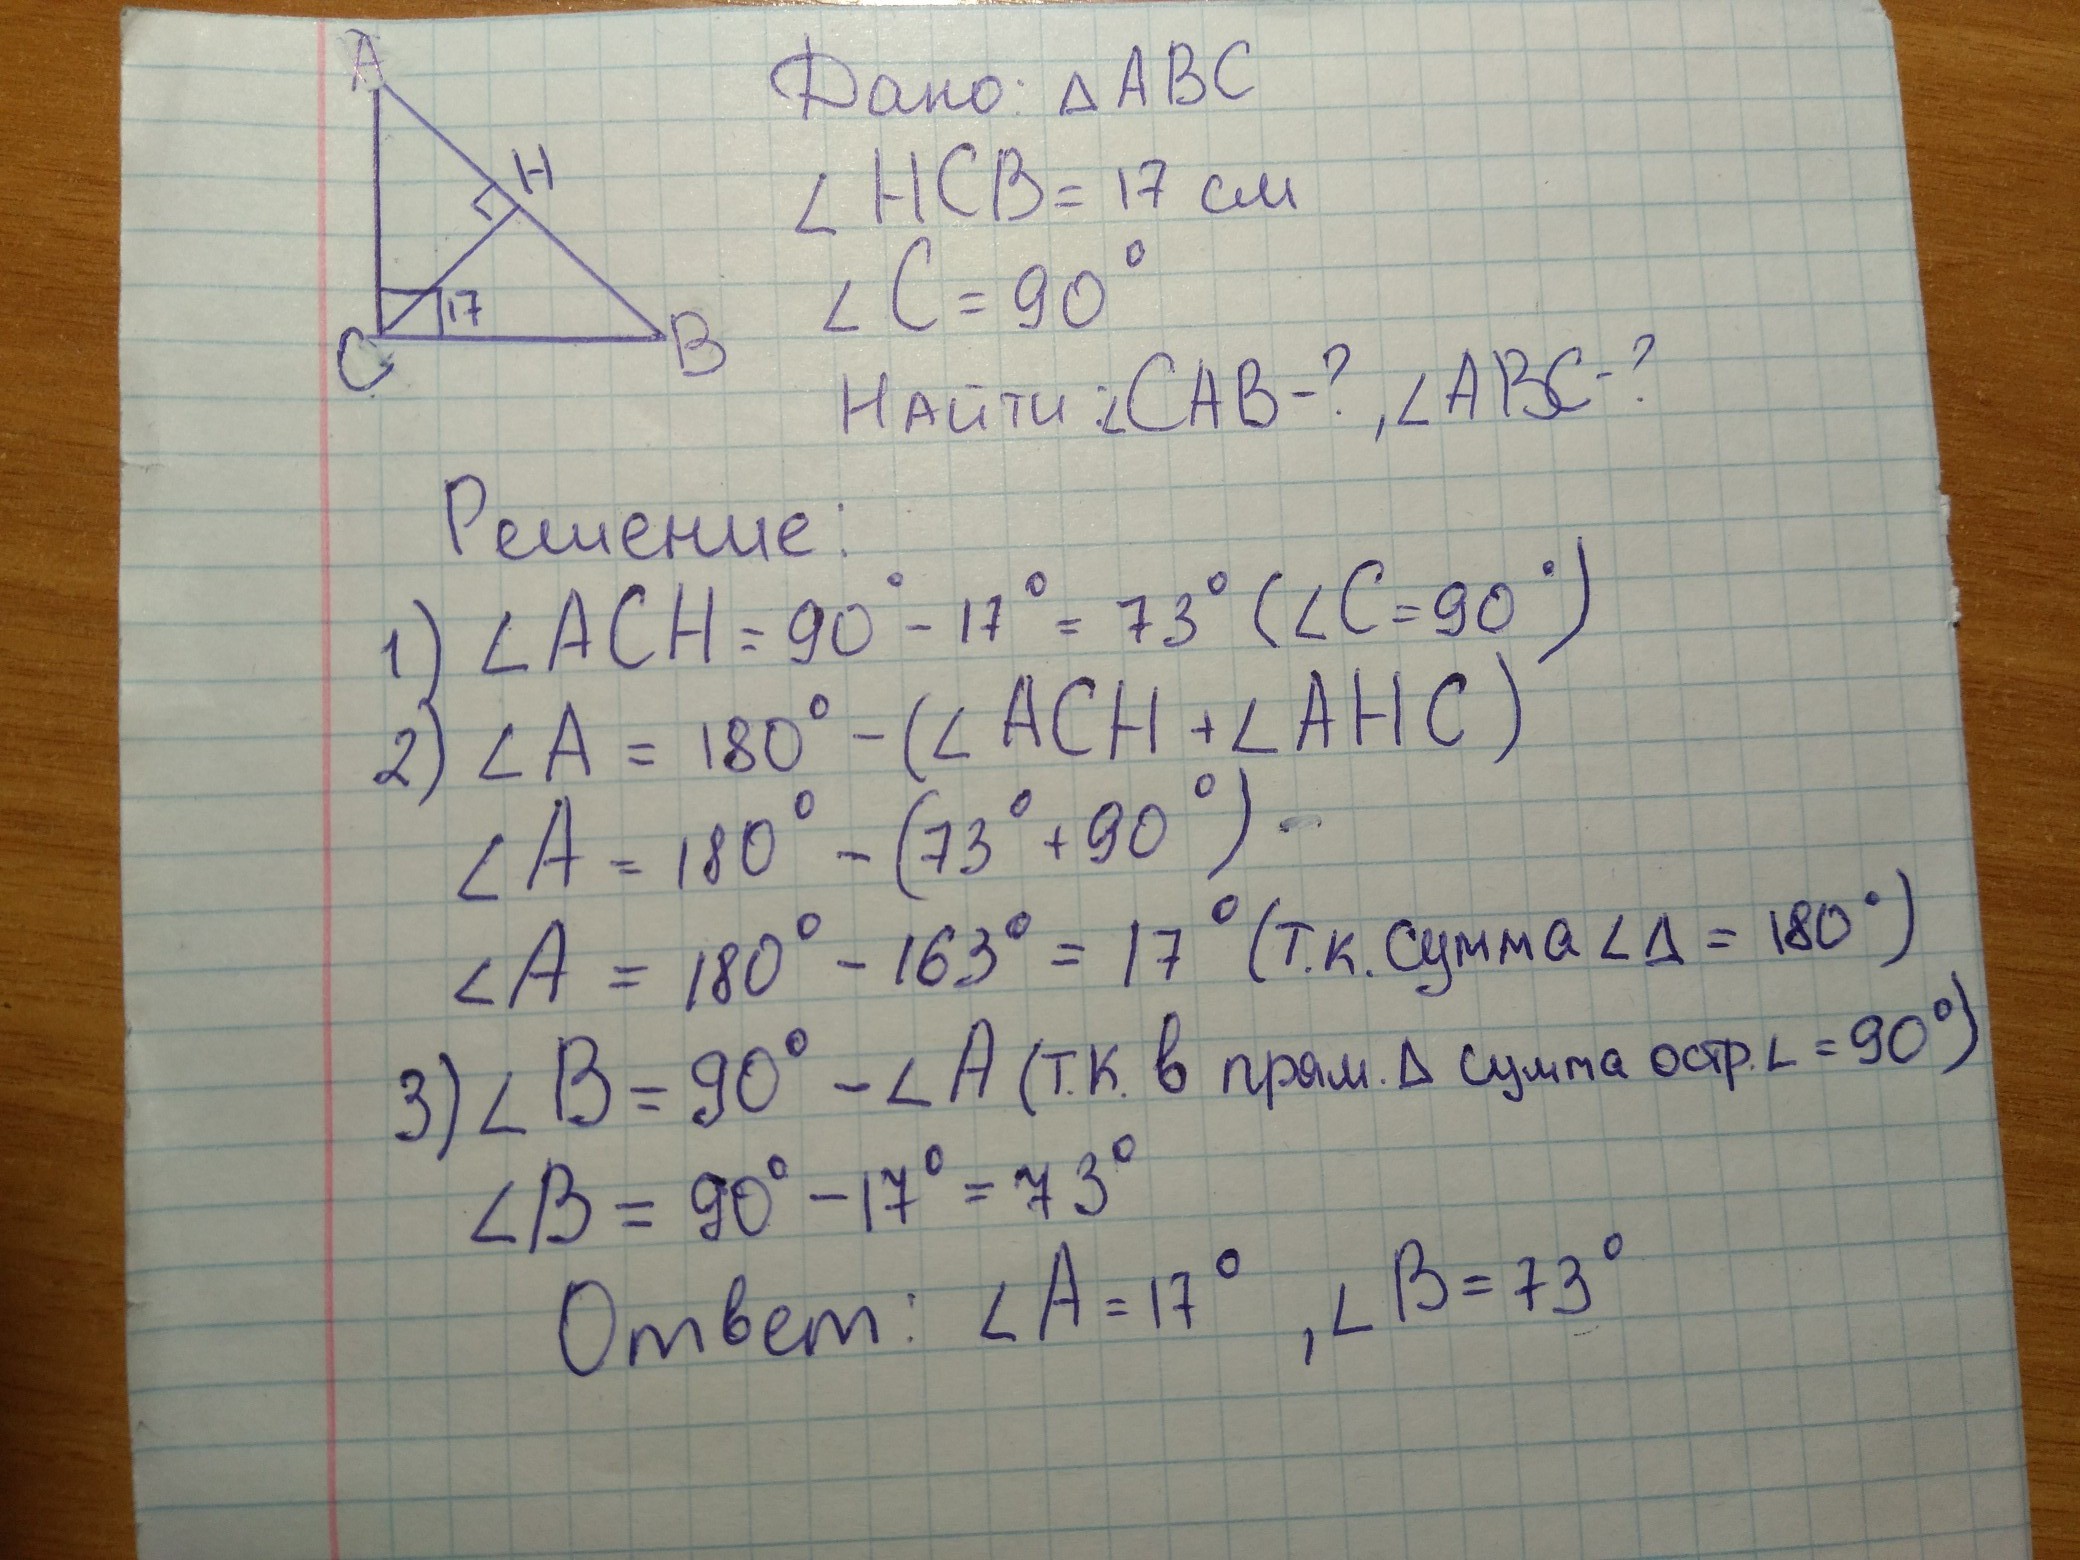 A
H
17
C
B
Дано: ΔABC
∠HCB = 17 см
∠C = 90°
Найти: ∠CAB-?, ∠ABC-?
Решение:
1) ∠ACH = 90° - 17° = 73° (∠C = 90°)
2) ∠A = 180° - (∠ACH + ∠AHC)
∠A = 180° - (73° + 90°)
∠A = 180° - 163° = 17° (т.к. сумма ∠Δ = 180°)
3) ∠B = 90° - ∠A (т.к. в прям. Δ сумма остр. ∠ = 90°)
∠B = 90° - 17° = 73°
Ответ: ∠A = 17°, ∠B = 73°